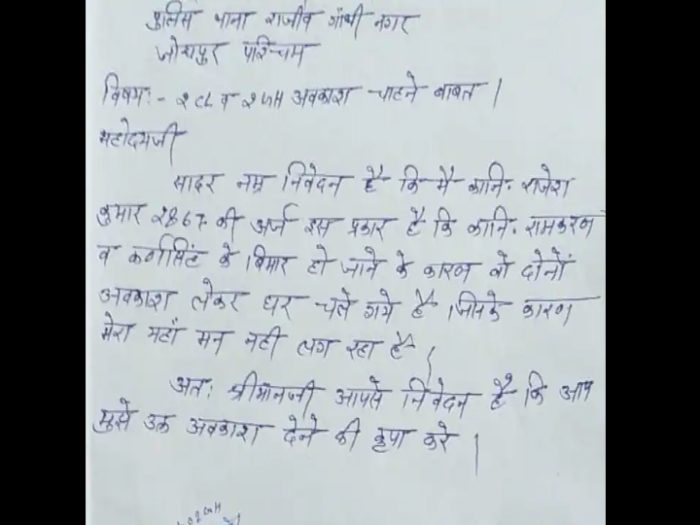 पुलिस थाना राजीव गाँधी नगर
जोधपुर पश्चिम
विषय:- २CL व २GH अवकाश चाहने बाबत।
महोदयजी
सादर नम्र निवेदन है कि मै कानि. राजेश
कुमार 2867 की अर्ज इस प्रकार है कि कानि. रामकरण
व कर्णसिंह के बिमार हो जाने के कारण वो दोनों
अवकाश लेकर घर चले गये है। जिनके कारण
मेरा यहाँ मन नही लग रहा है।
अत: श्रीमानजी आपसे निवेदन है कि आप
मुझे उक्त अवकाश देने की कृपा करे।